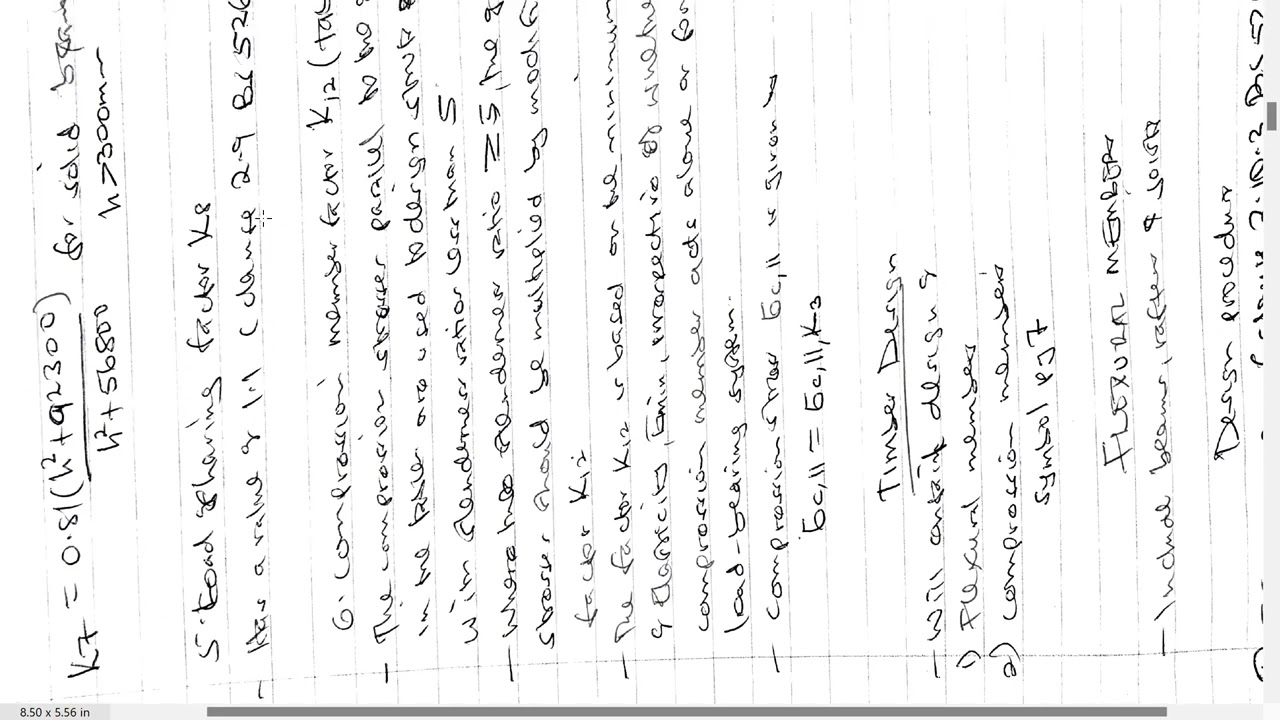 K7 = 0.81(h²+92300) for solid
h²+56800 h>300mm
5. Load sharing factor K8
- Has a value of 1.1 (clause 2.9 BS 526
6. Compression member factor K12 (tab
- The compression stresses parallel to the
in the table are used to design strut
with slenderness ratios less than 5
- Where the slenderness ratio ≥5, the
stresses should be multiplied by modifi
factor K12
- The factor K12 is based on the minimum
of Elasticity, Emin, irrespective of whethe
compression member acts alone or for
load-bearing system.
- Compression stress σc,11 is given by
σc,11 = σc,11,K3
Timber Design
- Will contain design of
1) Flexural members
2) Compression members
Symbol pg 7
FLEXURAL MEMBERS
- Include beams, rafters & joists
Design procedure
clause 2.10.2 BS 52
8.50 x 5.56 in